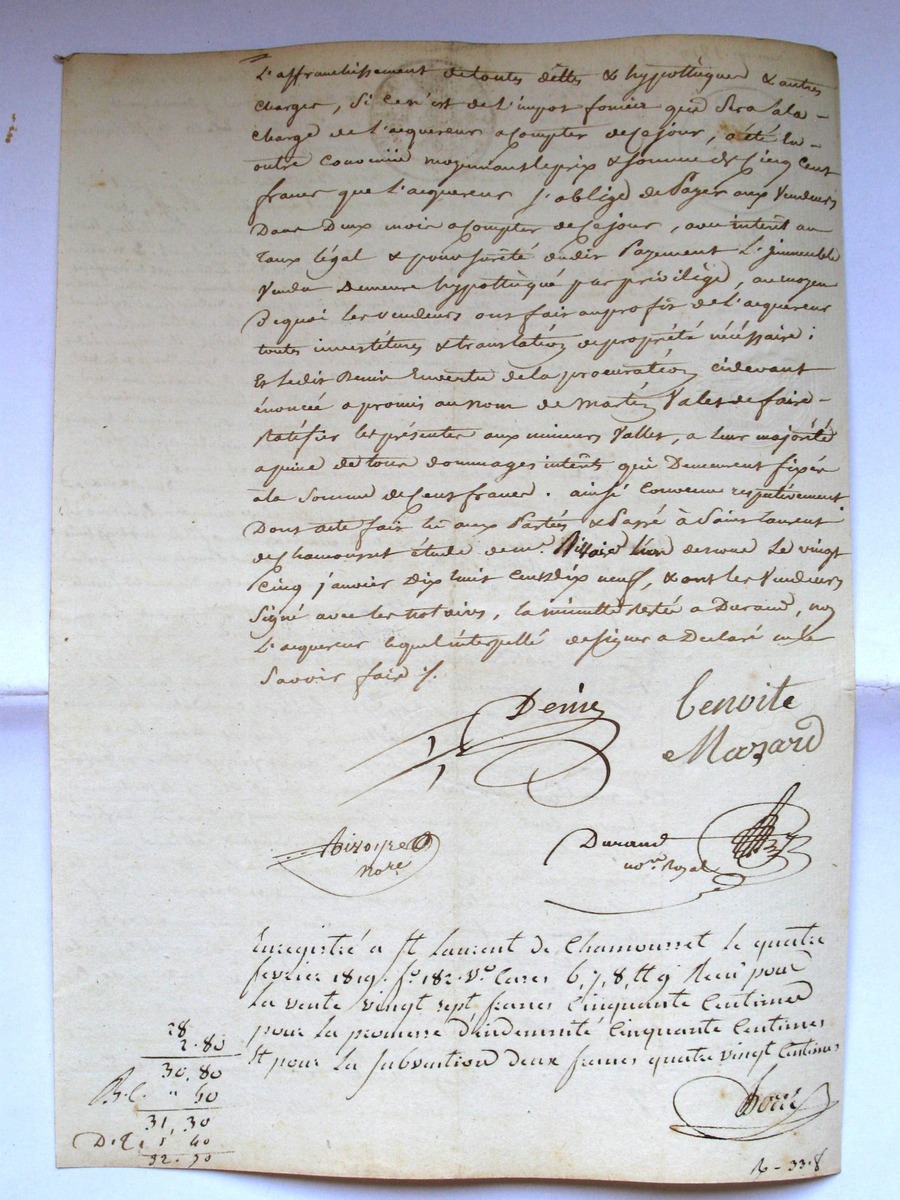 L'affranchissement de toutes dettes & hypothèques & autres
charges, si ce n'est de l'impot foncier qui sera à la
charge de l'acquereur a compter de ce jour, a été en
outre convenue moyennant le prix & somme de cinq cent
francs que l'acquereur s'oblige de payer aux vendeurs
Dans Deux mois a compter de ce jour, avec intérêt au
taux légal & pour sureté dudit Payement L'immeuble
Vendu Demeure hypothèqué par privilège, au moyen
De quoi les vendeurs ont fait au profit de l'acquereur
toutes investitures & translation de propriété nécessaire ;
Et ledit Denis En vertu de la procuration cidevant
énoncée a promis au nom de Martin Valet de faire
ratéfier les présentes aux mineurs Vallet, a leur majorité
a peine de tous dommages intérêts qui Demeurent fixés
à la Somme de Cent francs. ainsi Convenu respectivement
Dont acte fait lu aux Parties & Passé à Saint Laurent
de Chamousset étude de me. l'un de nous Le vingt
Cinq janvier Dix huit Cent dix neuf, & ont les Vendeurs
Signé avec les notaires, la minutte restée a Durand, non
L'acquereur lequel interpellé de signer a Declaré ne le
Savoir faire ./.
Denis
benoite
Mazard
nore.
Durand
nore. Royal
Enregistré a St Laurent de Chamousset le quatre
février 1819. fo. 182. Vo. Cases 6, 7, 8, Et 9 Recu pour
La vente vingt sept francs Cinquante Centimes
pour la promesse d'indemnité Cinquante Centimes
Et pour la subvention deux francs quatre vingt Centimes
28
2.80
30,80
" 50
31,30
1 40
33.8